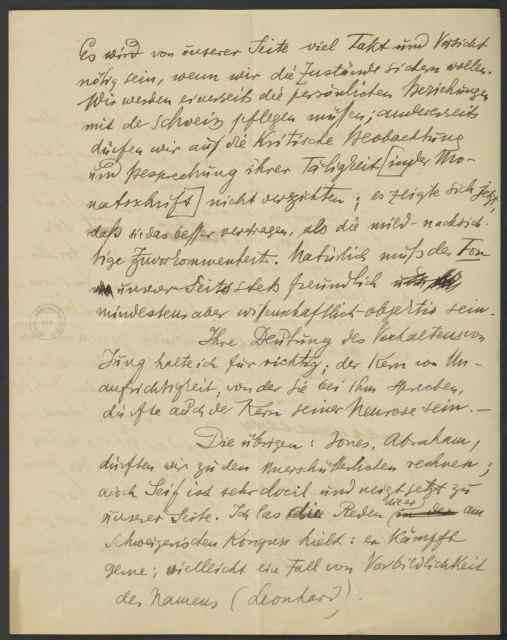 Es wird von unserer Seite viel Takt und Vorsicht
nötig sein, wenn wir die Zustände sichern wollen.
Wir werden einerseits die persönlichen Beziehungen
mit der Schweiz pflegen müßen; andererseits
dürfen wir auf die kritische Beobachtung
und Besprechung ihrer Tätigkeit [in der Mo-
natsschrift] nicht verzichten; es zeigte sich jetzt,
daß sie das besser vertragen, als die mild-nachsich-
tige Zuvorkommenheit. Natürlich muß der Ton
unserer Seits stets freundlich
mindestens aber wissenschaftlich-objektiv sein.
Ihre Deutung des Verhaltens von
Jung halte ich für richtig; der Kern von Un-
aufrichtigkeit, von der Sie bei ihm sprechen,
dürfte auch der Kern seiner Neurose sein. —
Die übrigen: Jones, Abraham,
dürften wir zu den Unerschütterlichen rechnen;
auch Seif ist sehr docil und neigt jetzt zu
unserer Seite. Ich las die Reden die er in der am
Schweizerischen Kongress hielt: er kämpft
gerne; vielleicht ein Fall von Vorbildlichkeit
des Namens (Leonhard).